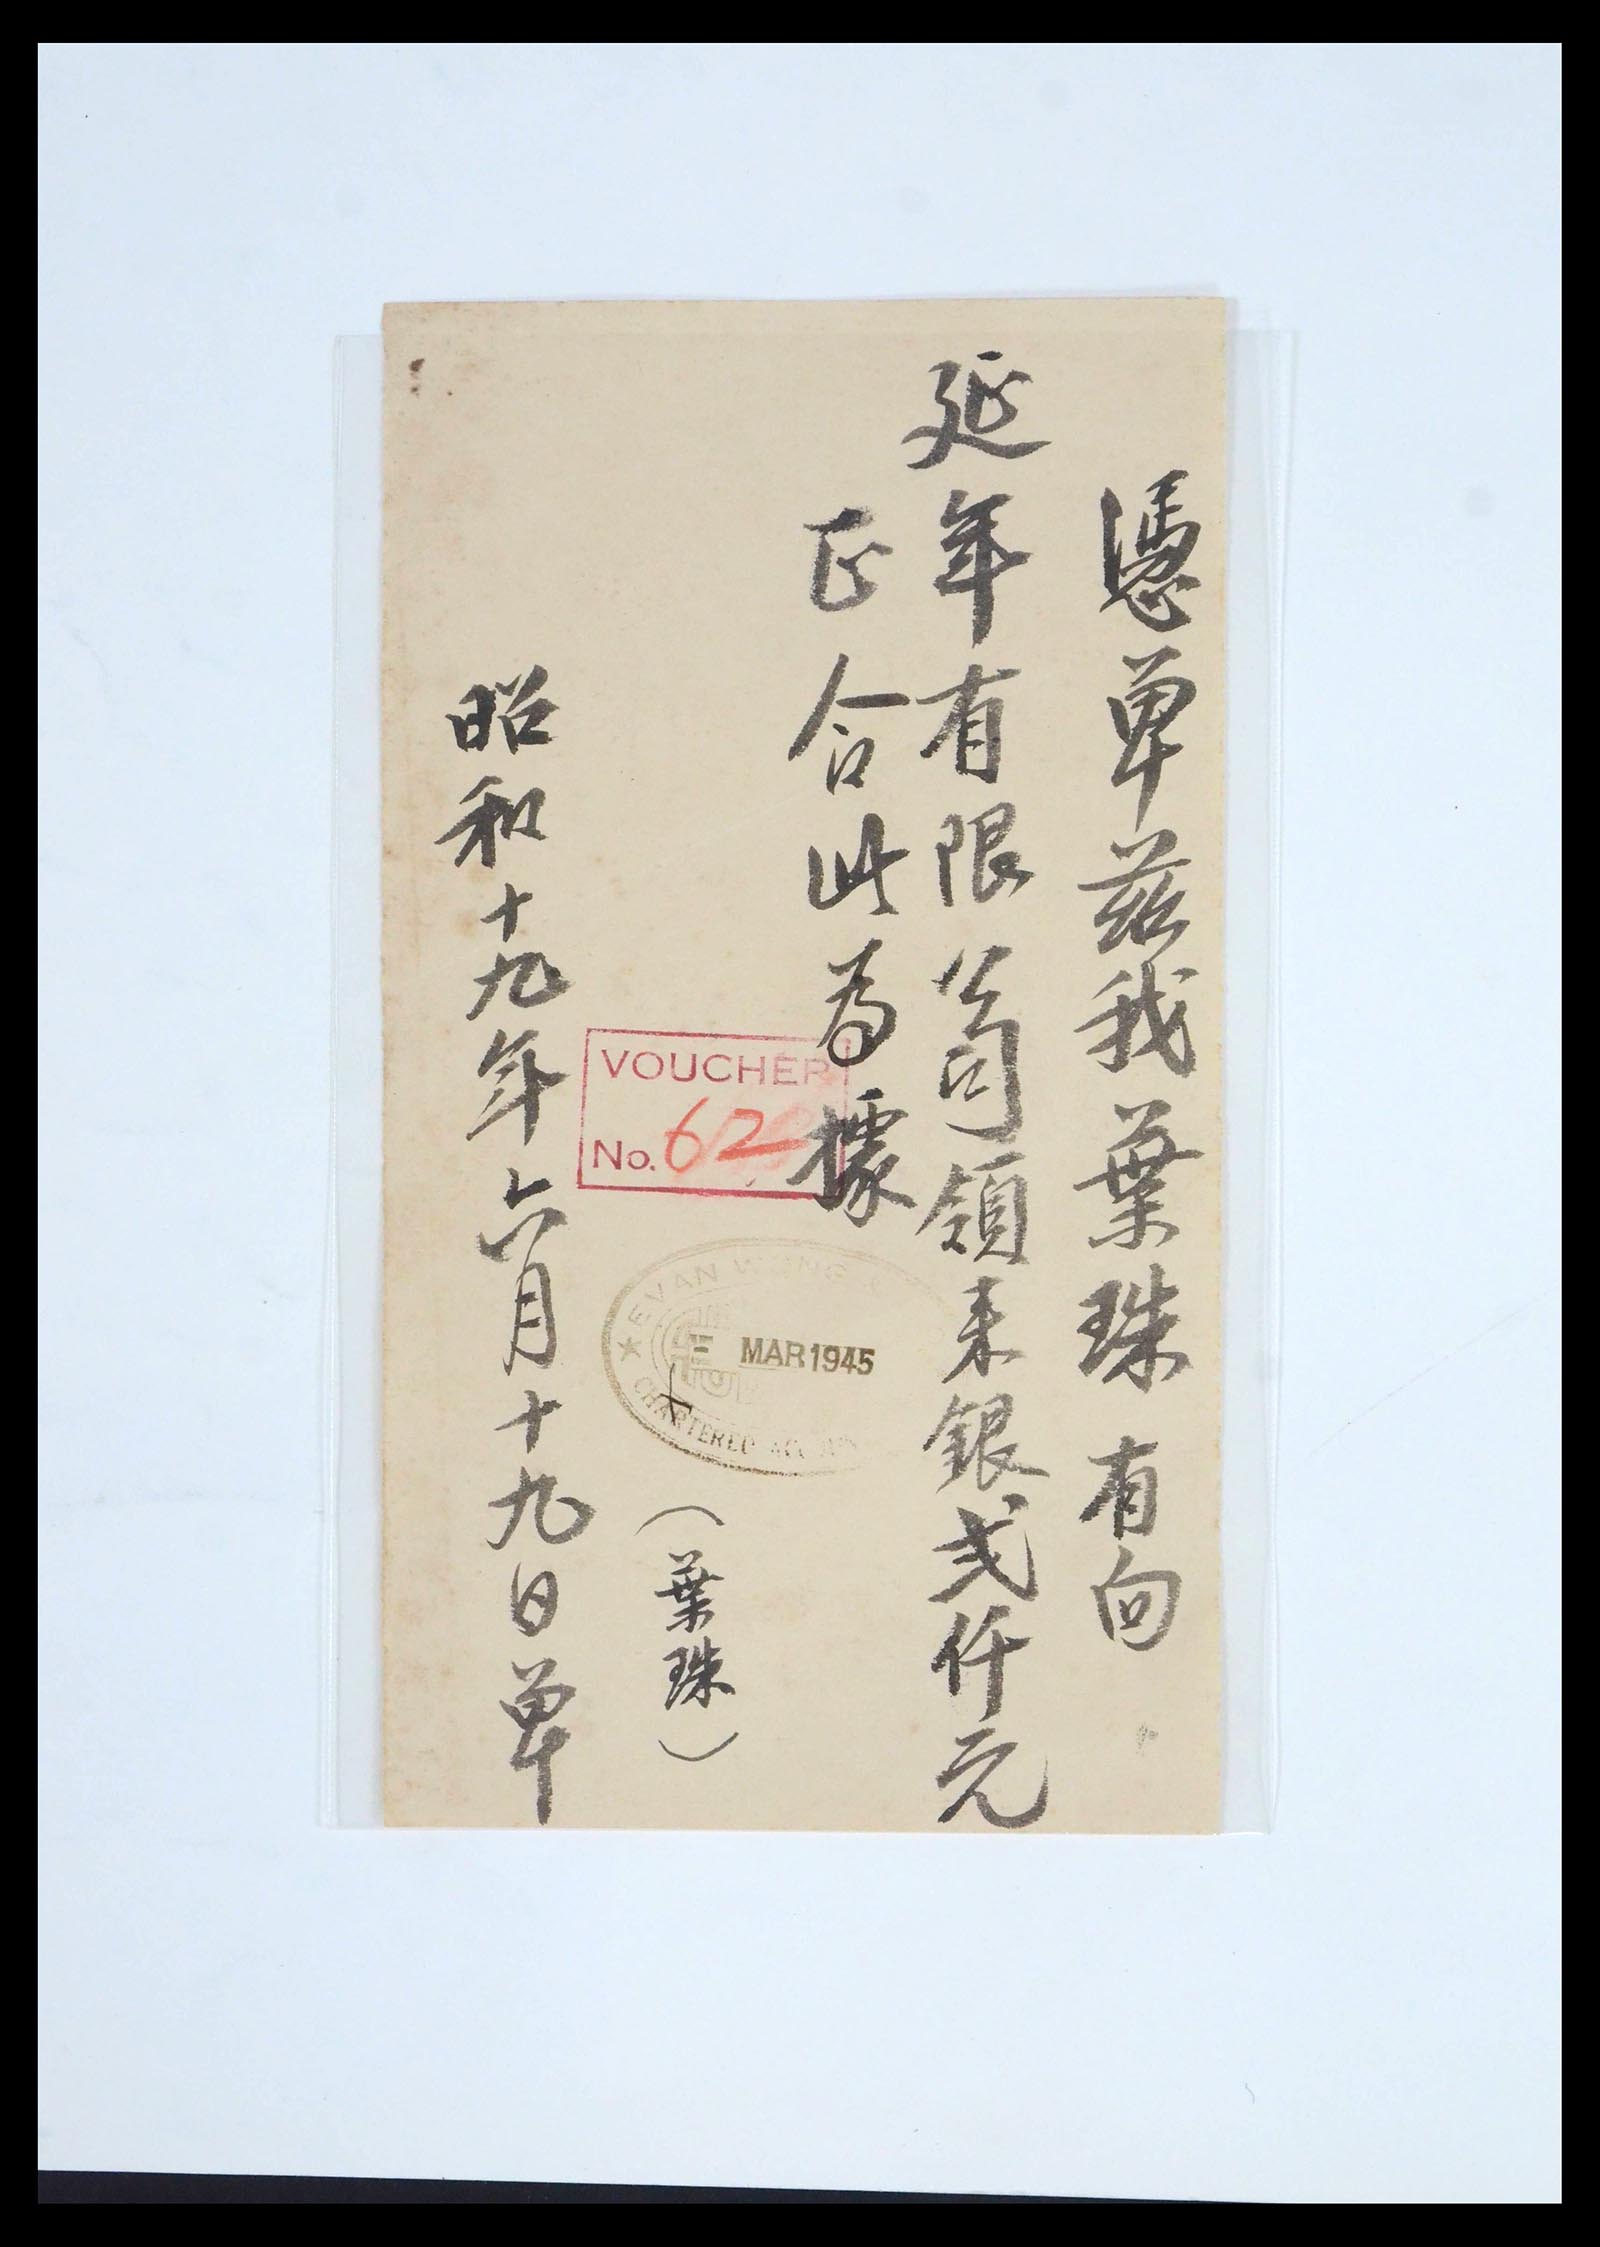 憑单兹我葉珠有向
延年有限公司領来銀弍仟元
正合此为據
(葉珠)
昭和十九年六月十九日单
VOUCHER
No. 62
EVAN WONG &
MAR 1945
CHARTERED